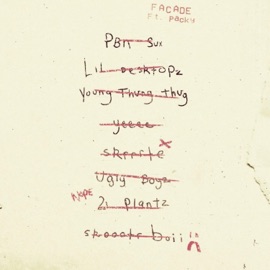 FACADE
Ft. packy
PBn Sux
Lil Desktopz
Young Thung thug
yeeee
skrrrte
Ugly Boyz
Nope
2i Plantz
skoootr boii